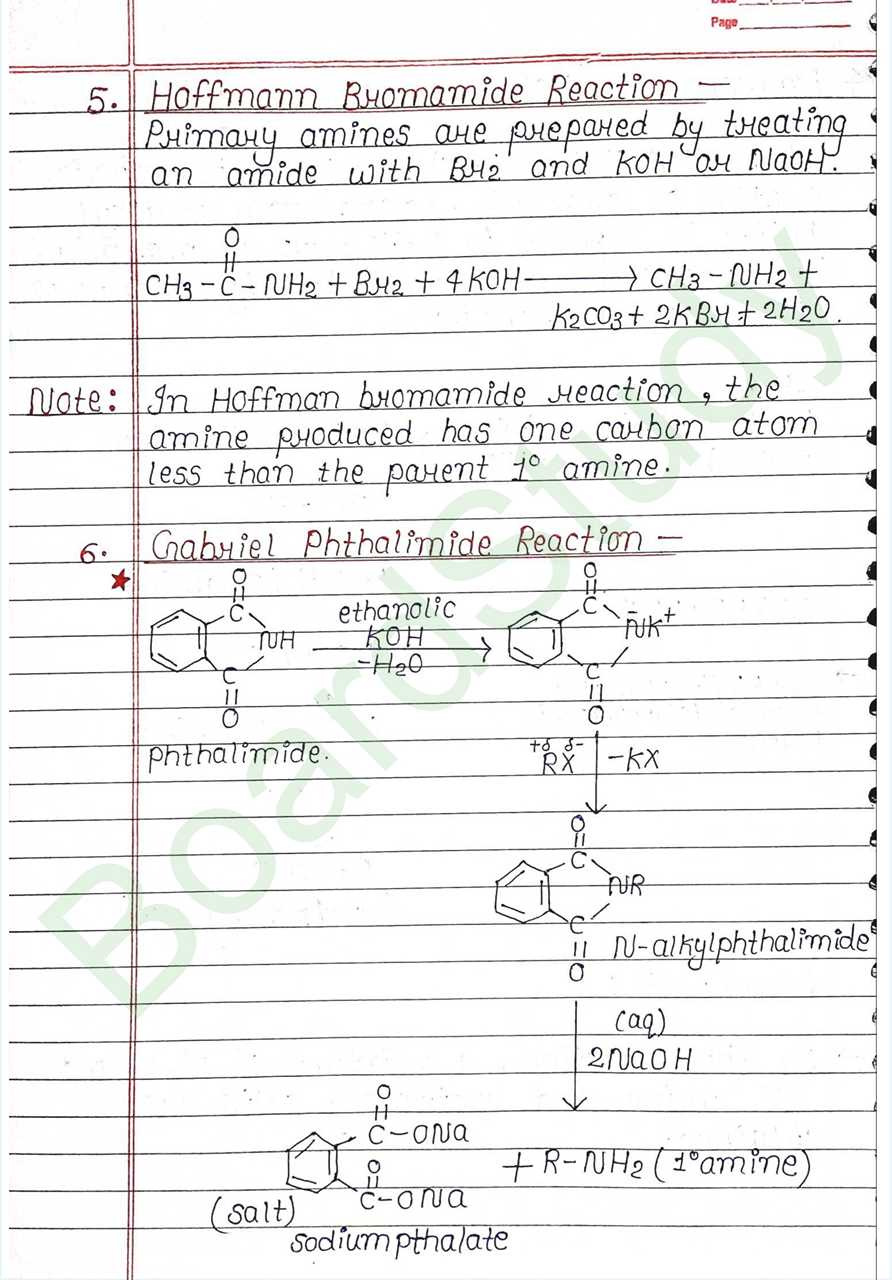 Page
5. Hoffmann Bromamide Reaction –
Primary amines are prepared by treating
an amide with Br2 and KOH or NaOH.
O
||
CH3 – C – NH2 + Br2 + 4KOH ⟶ CH3 – NH2 +
K2CO3 + 2KBr + 2H2O.
Note: In Hoffman bromamide reaction, the
amine produced has one carbon atom
less than the parent 1° amine.
6. Gabriel Phthalimide Reaction –
★
O O
|| ||
C C
ethanolic
NH KOH N̄K+
-H2O
C C
|| ||
O O
Phthalimide.
+δ δ-
RX -KX
O
||
C
NR
C
|| N-alkylphthalimide
O
(aq)
2NaOH
O
||
C-ONa
O
||
C-ONa
+ R-NH2 (1° amine)
(salt)
sodium pthalate
BoardStudy